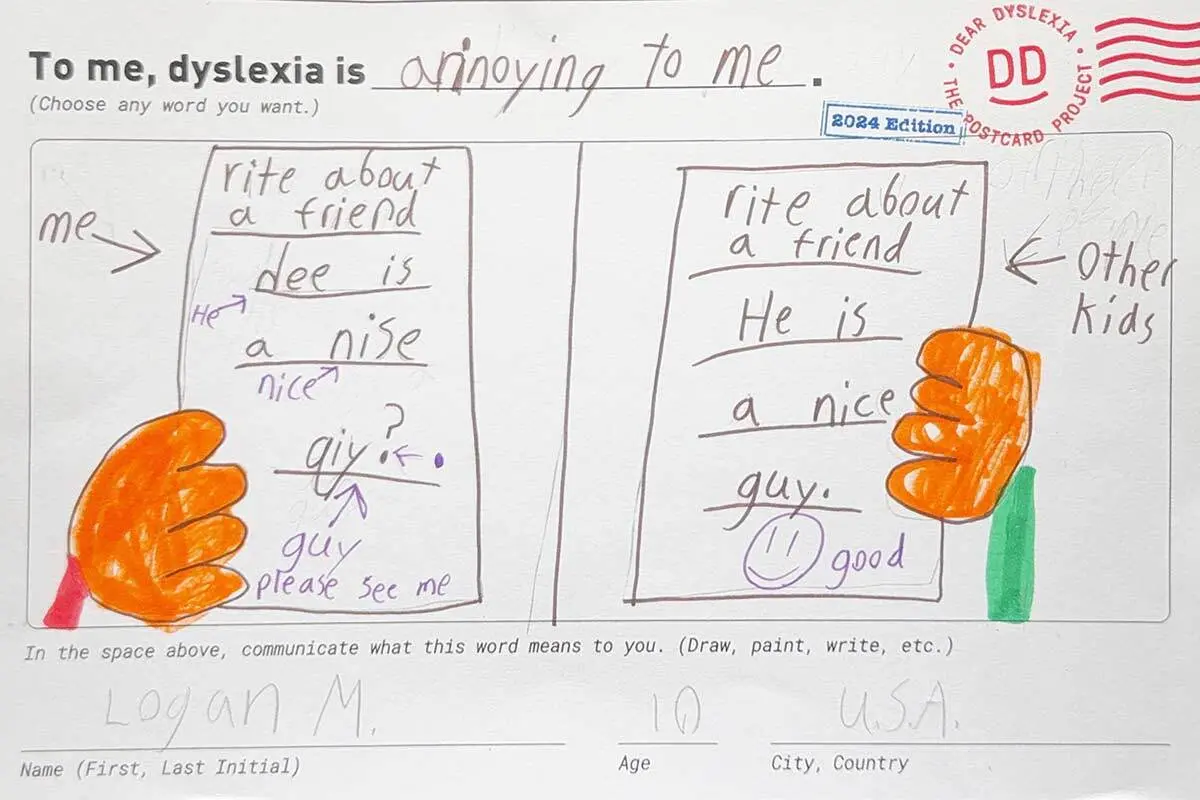 To me, dyslexia is annoying to me.
(Choose any word you want.)
DEAR DYSLEXIA
DD
THE POSTCARD PROJECT
2024 Edition
me
rite about
a friend
dee is
He
a nise
nice
qiy?
.
guy
please see me
rite about
a friend
He is
a nice
guy.
good
Other
kids
In the space above, communicate what this word means to you. (Draw, paint, write, etc.)
Logan M. 10 U.S.A.
Name (First, Last Initial) Age City, Country